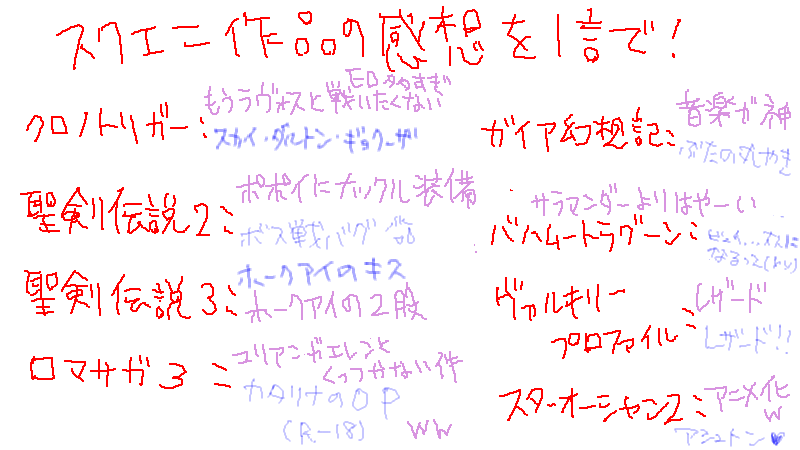 スクエニ作品の感想を1言で!
クロノトリガー:
ED多すぎ
もうラヴォスと戦いたくない
スカイ・ダルトン・ギョクーザ
聖剣伝説2:
ポポイにナックル装備
ボス戦バグ
聖剣伝説3:
ホークアイのキス
ホークアイの2股
ロマサガ3:
ユリアンがエレンと
くっつかない件
カタリナのOP
(R-18)
ww
ガイア幻想記:
音楽が神
ぶたの丸やき
サラマンダーよりはやーい
バハムートラグーン:
ビュウ...オスに
なるって
ヴァルキリー
プロファイル:
レザード
レザード!!
スターオーシャン2:
アニメ化
w
アシュトン♥